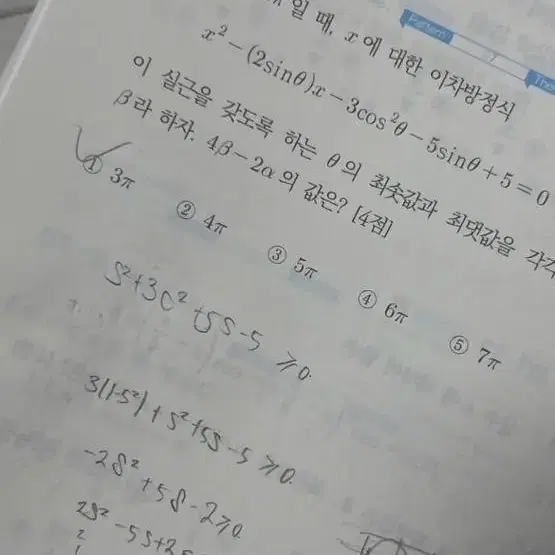 Pattern 7
일 때, x에 대한 이차방정식
x² - (2sinθ)x - 3cos²θ - 5sinθ + 5 = 0
이 실근을 갖도록 하는 θ의 최솟값과 최댓값을 각각
β라 하자. 4β - 2α의 값은? [4점]
① 3π
② 4π
③ 5π
④ 6π
⑤ 7π
S²+3C²+5S-5≥0.
3(1-S²)+S²+5S-5≥0.
-2S²+5S-2≥0.
2S²-5S+2